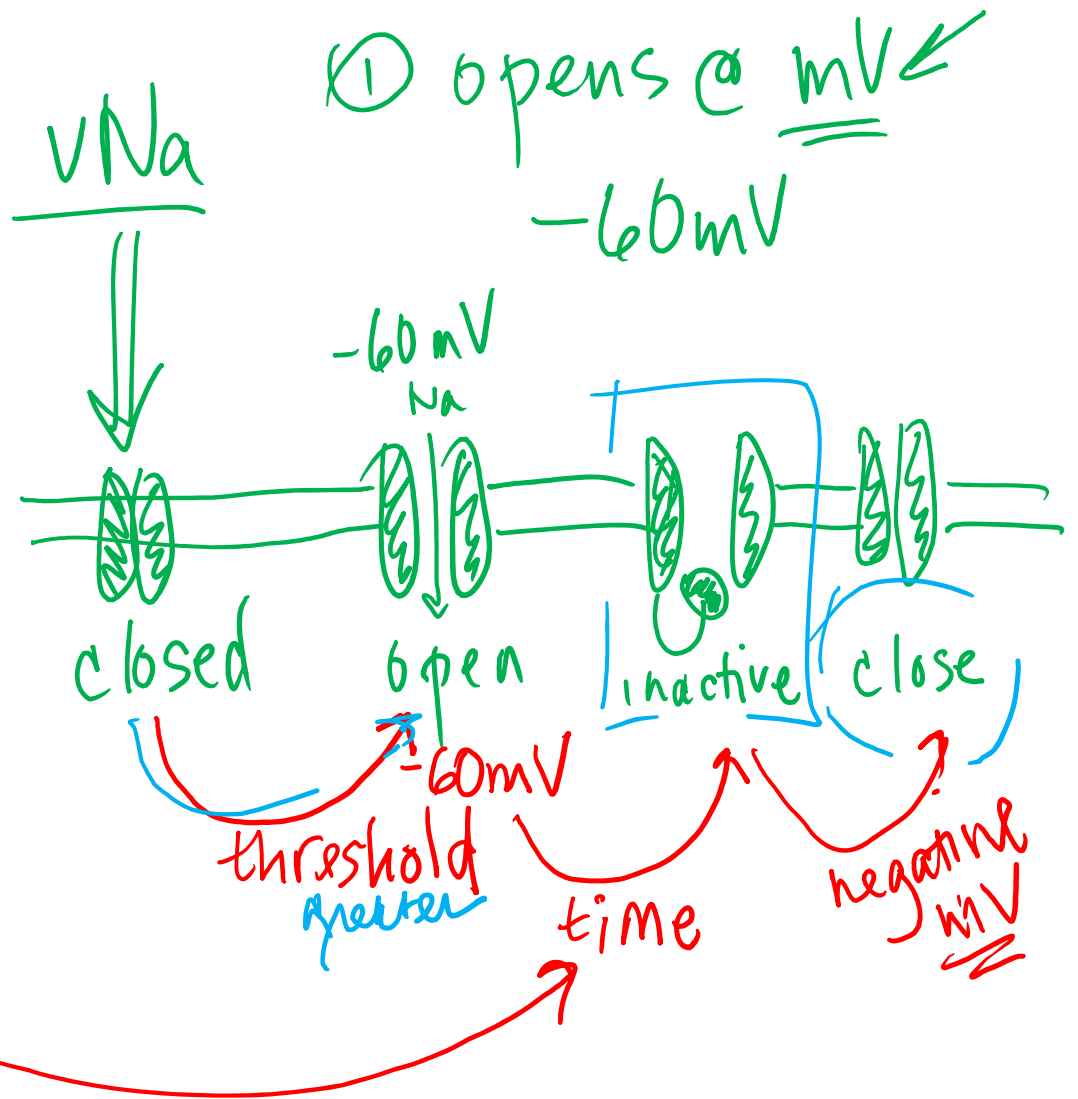 ① opens @ mV
vNa
-60mV
-60mV
Na
closed
open
inactive
close
-60mV
threshold
greater
time
negative
mV